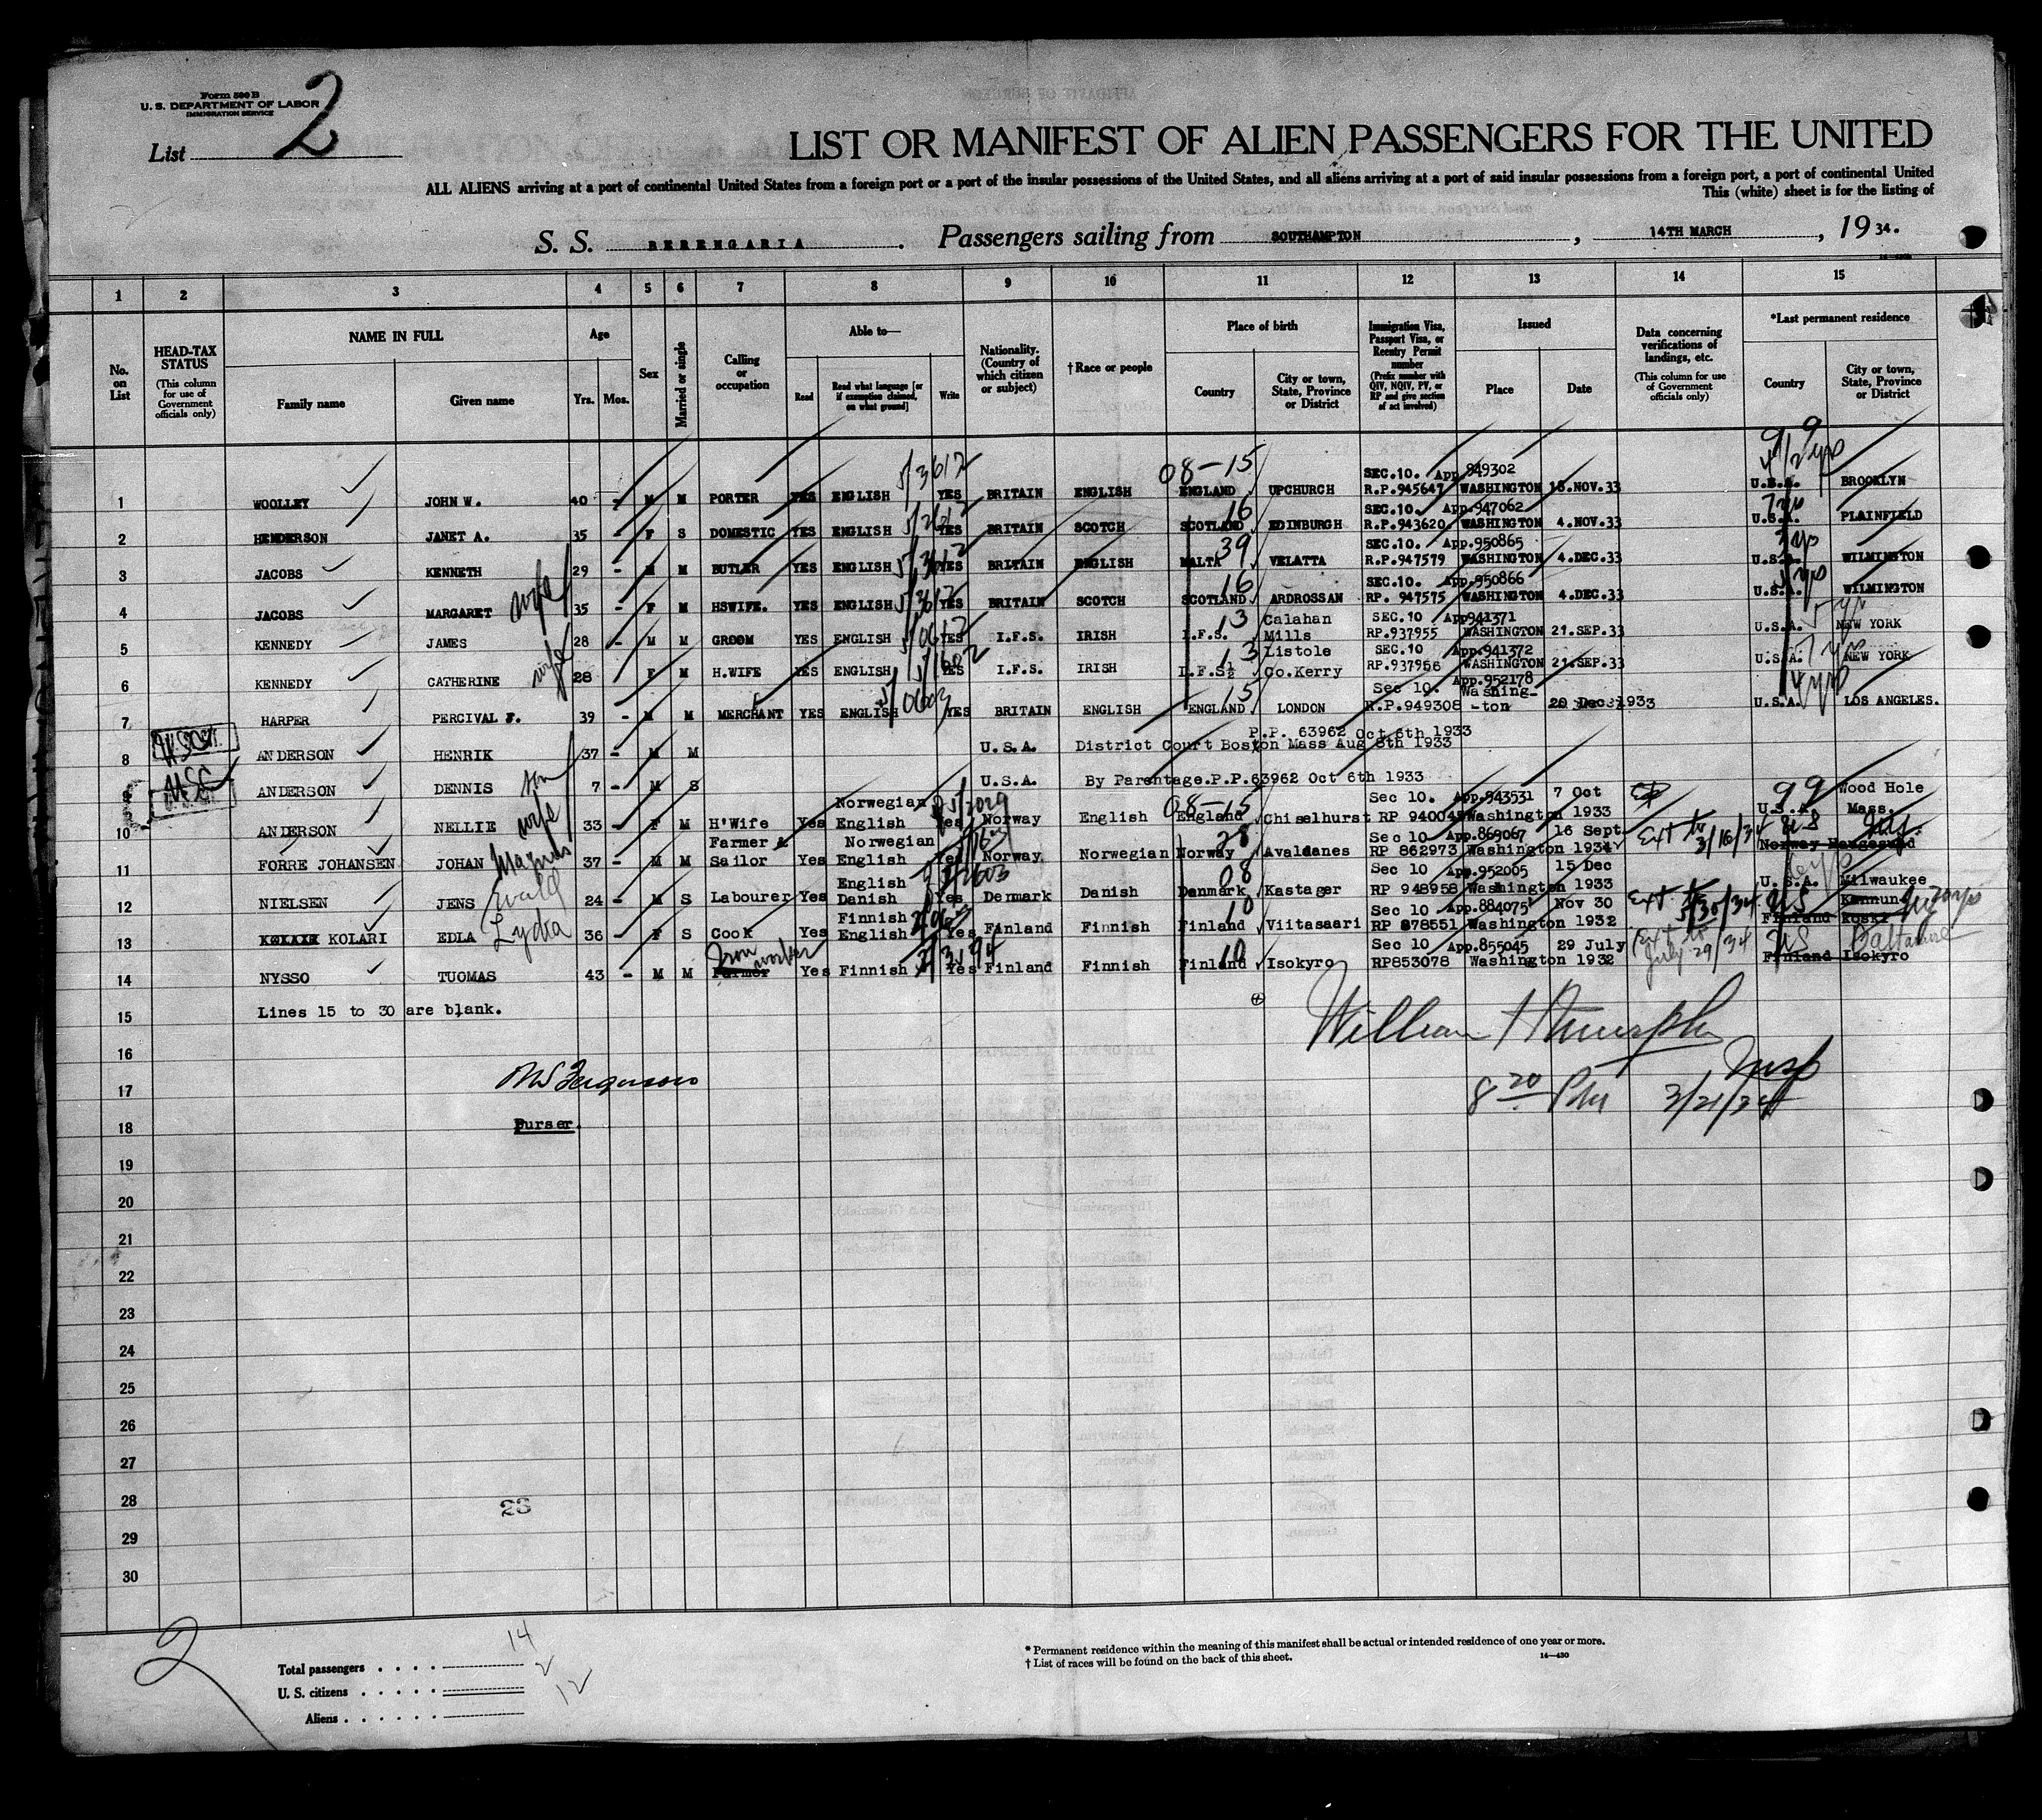 Form 500 B
U. S. DEPARTMENT OF LABOR
IMMIGRATION SERVICE
List 2
LIST OR MANIFEST OF ALIEN PASSENGERS FOR THE UNITED
ALL ALIENS arriving at a port of continental United States from a foreign port or a port of the insular possessions of the United States, and all aliens arriving at a port of said insular possessions from a foreign port, a port of continental United
This (white) sheet is for the listing of
S. S. BERENGARIA. Passengers sailing from SOUTHAMPTON, 14TH MARCH, 19 34.
1 2 3 4 5 6 7 8 9 10 11 12 13 14 15
No. on List
HEAD-TAX STATUS (This column for use of Government officials only)
NAME IN FULL Family name Given name
Age Yrs. Mos.
Sex
Married or single
Calling or occupation
Able to— Read Read what language [or if exemption claimed, on what ground] Write
Nationality. (Country of which citizen or subject)
† Race or people
Place of birth Country City or town, State, Province or District
Immigration Visa, Passport Visa, or Reentry Permit number (Prefix number with QIV, NQIV, PV, or RP and give section of act involved)
Issued Place Date
Data concerning verifications of landings, etc. (This column for use of Government officials only)
*Last permanent residence Country City or town, State, Province or District
1 WOOLLEY JOHN W. 40 - M M PORTER YES ENGLISH 5/3612 YES BRITAIN ENGLISH 08-15 ENGLAND UPCHURCH SEC.10. App 949302 R.P.945647 WASHINGTON 18.NOV.33 U.S.A. BROOKLYN
2 HENDERSON JANET A. 35 - F S DOMESTIC YES ENGLISH YES BRITAIN SCOTCH 16 SCOTLAND EDINBURGH SEC.10. App.947062 R.P.943620 WASHINGTON 4.NOV.33 7 yrs U.S.A. PLAINFIELD
3 JACOBS KENNETH 29 - M M BUTLER YES ENGLISH YES BRITAIN ENGLISH 39 MALTA VELATTA SEC.10. App.950865 R.P.947579 WASHINGTON 4.DEC.33 U.S.A. WILMINGTON
4 JACOBS MARGARET wife 35 - F M HSWIFE. YES ENGLISH YES BRITAIN SCOTCH 16 SCOTLAND ARDROSSAN SEC.10. App.950866 RP. 947575 WASHINGTON 4.DEC.33 U.S.A. WILMINGTON
5 KENNEDY JAMES 28 - M M GROOM YES ENGLISH YES I.F.S. IRISH 13 I.F.S. Calahan Mills SEC.10 App941371 RP.937955 WASHINGTON 21.SEP.33 U.S.A. 5 yrs NEW YORK
6 KENNEDY CATHERINE wife 28 F M H.WIFE YES ENGLISH YES I.F.S. IRISH 13 I.F.S½ Listole Co.Kerry SEC.10 App.941372 RP.937956 WASHINGTON 21.SEP.33 U.S.A. 7 yrs NEW YORK
7 HARPER PERCIVAL F. 39 - M M MERCHANT YES ENGLISH 5/0603 YES BRITAIN ENGLISH 15 ENGLAND LONDON Sec 10. App.952178 R.P.949308 Washing- -ton 20 Dec 1933 4 yrs U.S.A. LOS ANGELES.
8 ANDERSON HENRIK 37 - M M U.S.A. P.P. 63962 Oct 6th 1933 District Court Boston Mass Aug 8th 1933
9 ANDERSON DENNIS son 7 - M S U.S.A. By Parentage.P.P.63962 Oct 6th 1933
10 ANDERSON NELLIE wife 33 - F M H'Wife Yes Norwegian English Yes Norway English 08-15 England Chiselhurst Sec 10. App.943531 RP 94004 Washington 7 Oct 1933 99 U.S.A. Wood Hole Mass.
11 FORRE JOHANSEN JOHAN Magnus 37 - M M Farmer & Sailor Yes Norwegian English Yes Norway Norwegian 28 Norway Avaldanes Sec 10 App.869067 RP 862973 Washington 16 Sept 1934 Ext to 3/16/34 US Norway Haugesund
12 NIELSEN JENS 24 - M S Labourer Yes English Danish Yes Denmark Danish 08 Denmark Kastager Sec 10 App.952065 RP 948958 Washington 15 Dec 1933 U.S.A. Milwaukee
13 KOLARI EDLA Lydia 36 - F S Cook Yes Finnish English Yes Finland Finnish 10 Finland Viitasaari Sec 10 App.884075 RP 878551 Washington Nov 30 1932 Ext to 5/30/34 US Finland Koski
14 NYSSO TUOMAS 43 - M M Iron worker Farmer Yes Finnish Yes Finland Finnish 10 Finland Isokyro Sec 10 App.855045 RP853078 Washington 29 July 1932 Ext to July 29/34 US Finland Isokyro
15 Lines 15 to 30 are blank.
16
William H Murphy
Insp
17
8 20 PM 3/21/34
Ferguson
18 Purser.
19
20
21
22
23
24
25
26
27
28
23
29
30
2
Total passengers . . . . 14
U. S. citizens . . . . . 2
Aliens . . . . . . 12
* Permanent residence within the meaning of this manifest shall be actual or intended residence of one year or more.
† List of races will be found on the back of this sheet.
14—430